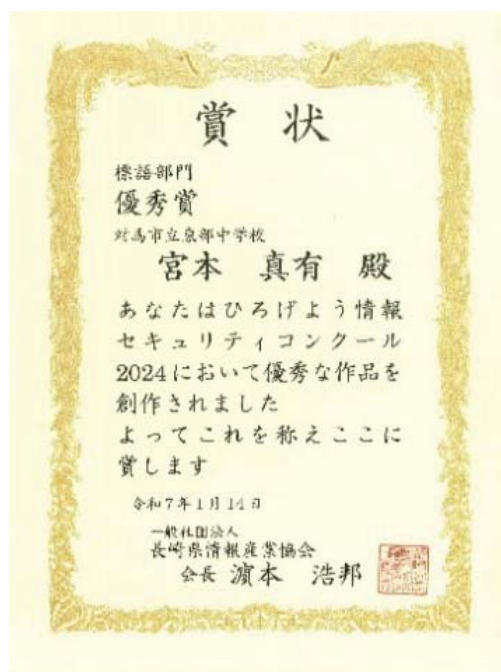 賞 状
標語部門
優秀賞
対馬市立泉部中学校
宮本 真有 殿
あなたはひろげよう情報
セキュリティコンクール
2024において優秀な作品を
創作されました
よってこれを称えここに
賞します
令和7年1月14日
一般社団法人
長崎県情報産業協会
会長 濵本 浩邦